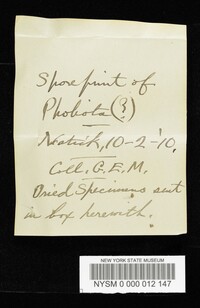 Spore print of
Pholiota (?)
Natick, 10-2-'10,
Coll. G. E. M.
Dried Specimens sent
in box herewith.
NEW YORK STATE MUSEUM
NYSM 0 000 012 147